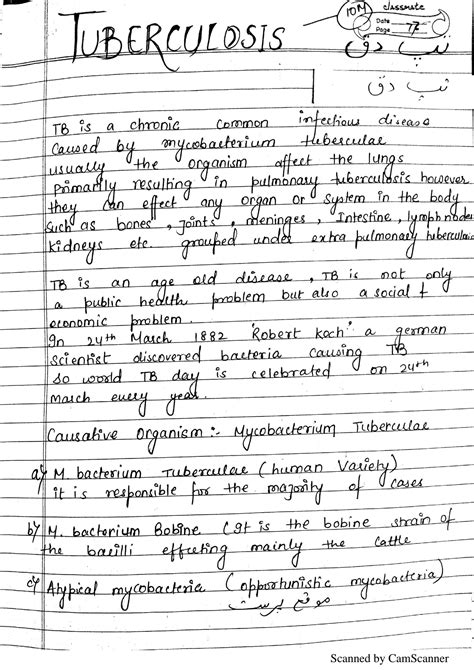 TUBERCULOSIS
10M
classmate
Date
Page 77
تپ دق
تپ دق
TB is a chronic common infectious disease
caused by mycobacterium tuberculae
usually the organism affect the lungs
primarily resulting in pulmonary tuberculosis however
they can effect any organ or system in the body
such as bones, joints, meninges, Intestine, lymph nodes
kidneys etc grouped under extra pulmonary tuberculosis
TB is an age old disease, TB is not only
a public health problem but also a social &
economic problem.
In 24th March 1882 'Robert Koch' a german
scientist discovered bacteria causing TB
so world TB day is celebrated on 24th
march every year.
Causative Organism :- Mycobacterium Tuberculae
a) M. bacterium Tuberculae (human Variety)
it is responsible for the majority of cases
b) M. bacterium Bobine (It is the bobine strain of
the basilli effecting mainly the cattle
c) Atypical mycobacteria (opportunistic mycobacteria)
موقع پرست
Scanned by CamScanner